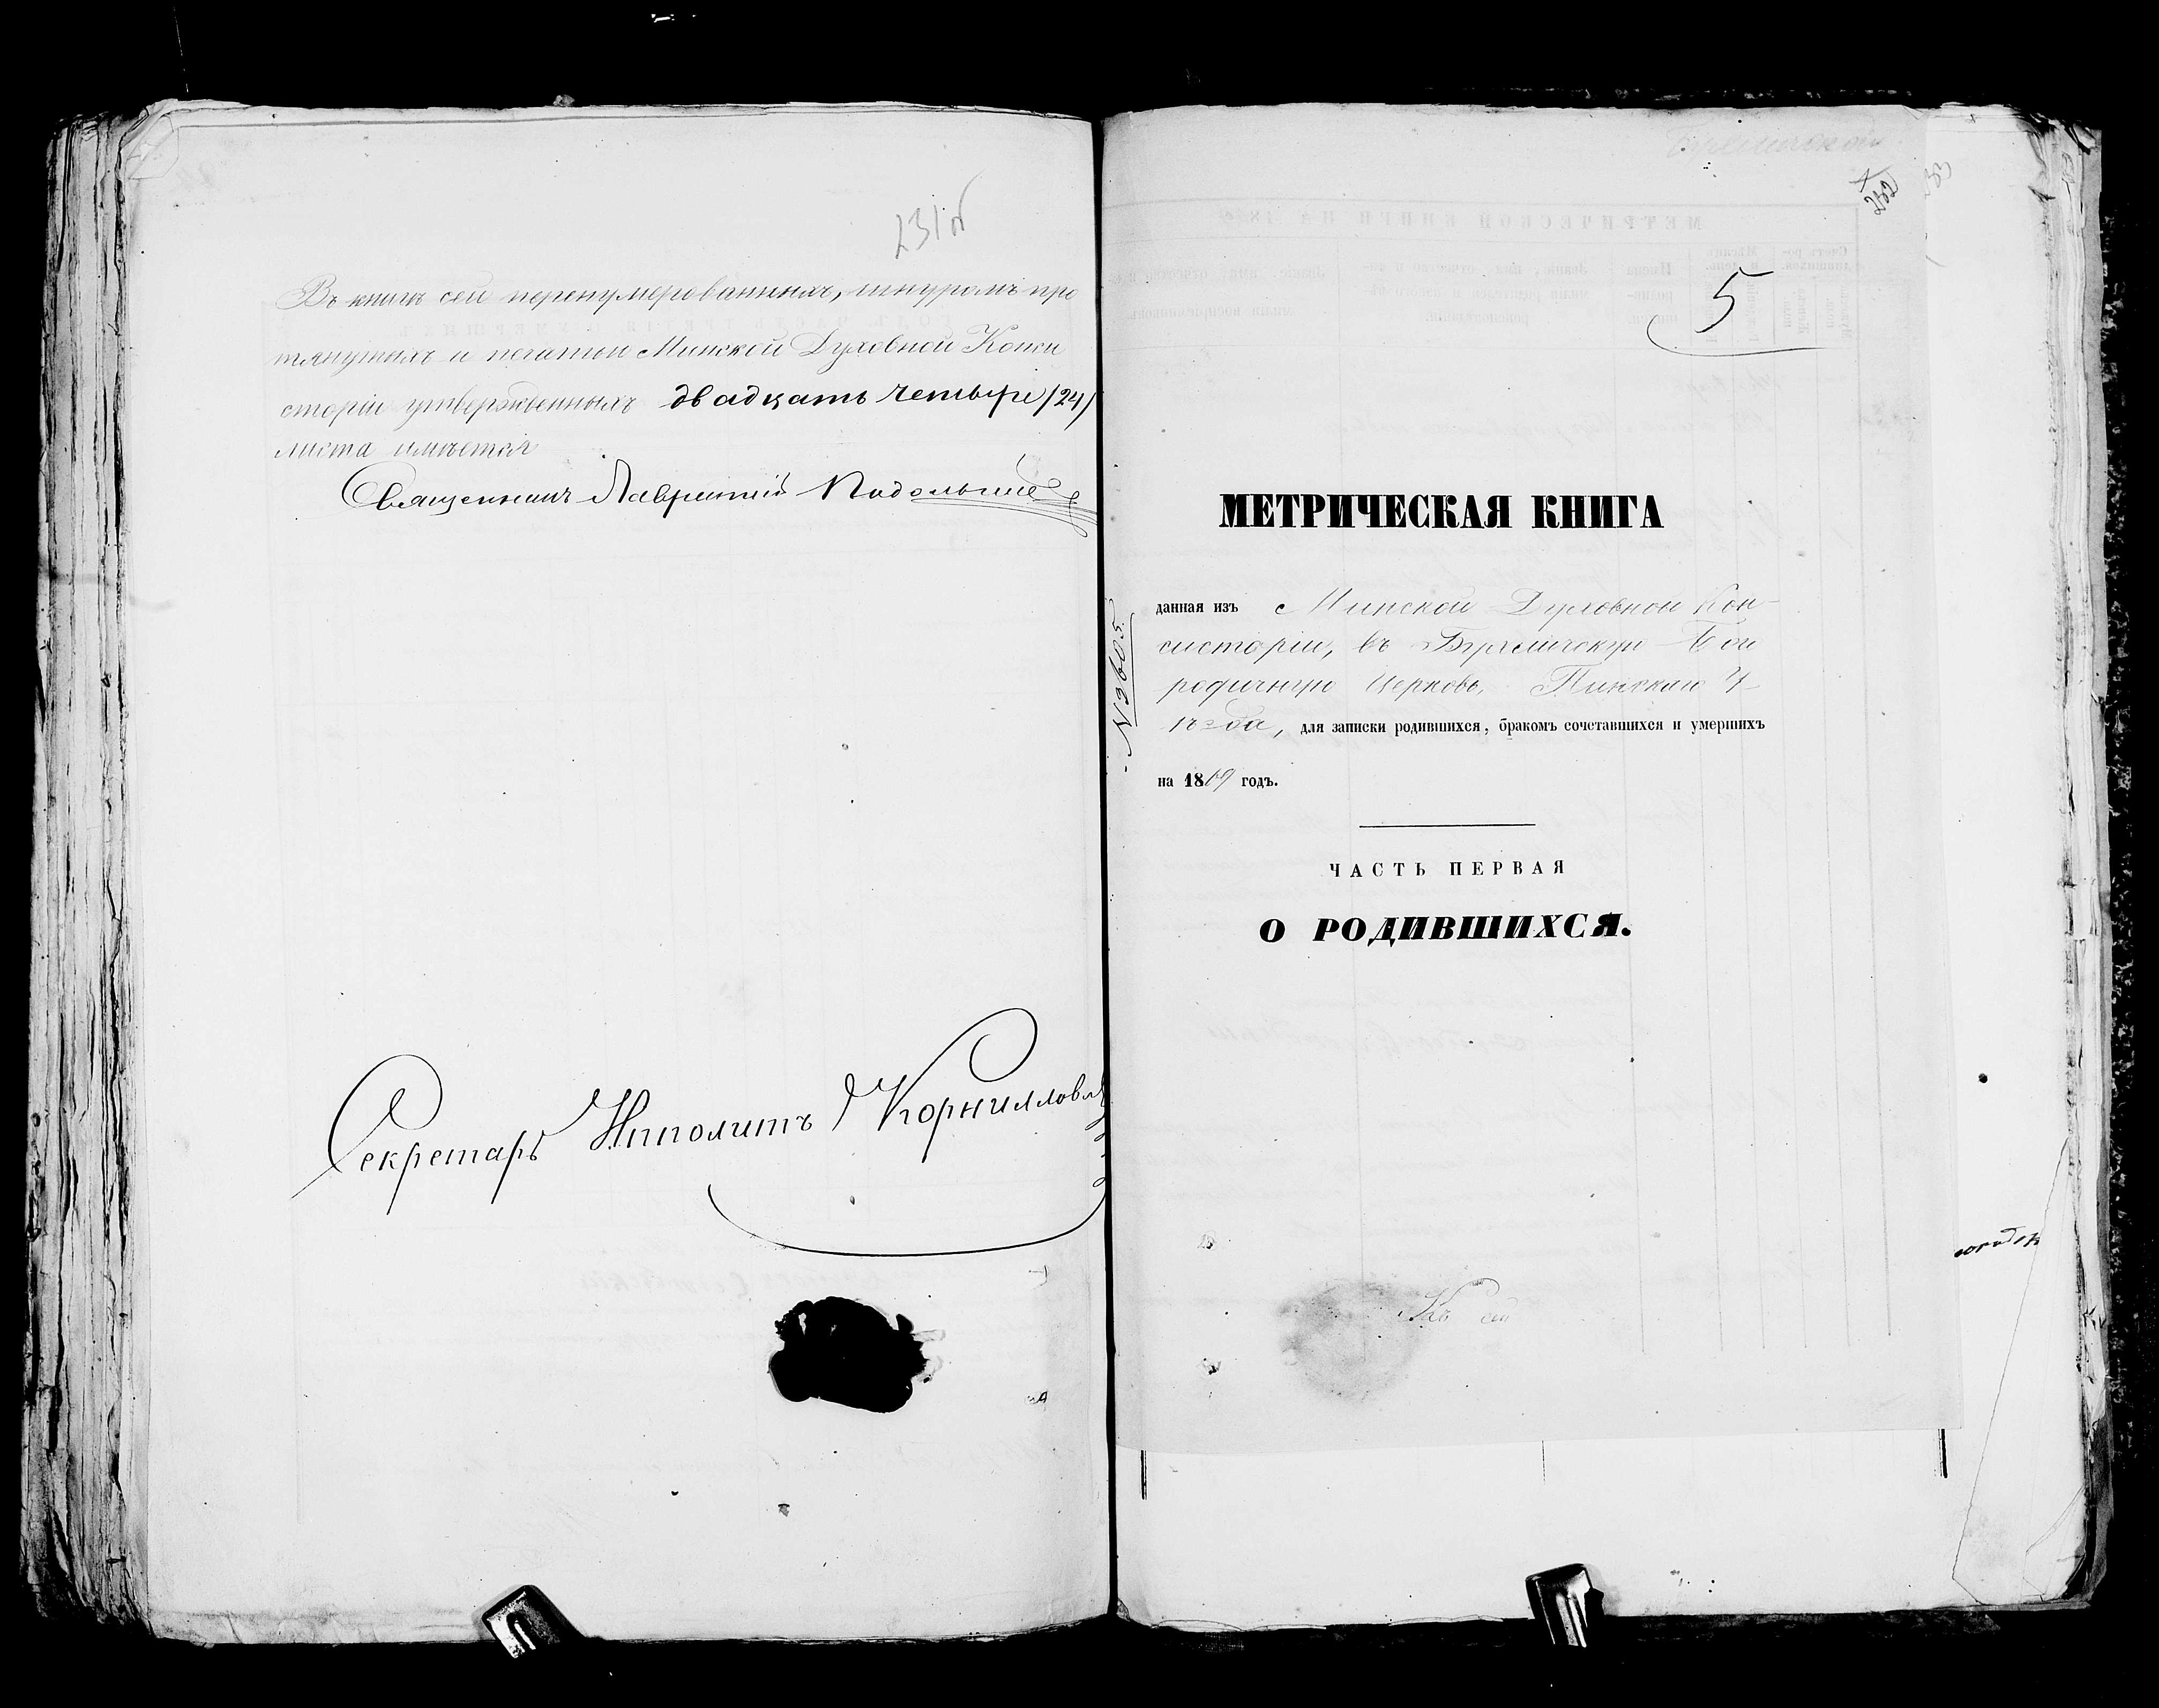 231об
Въ книгѣ сей перенумерованныхъ, шнуромъ про
тянутыхъ и печатью Минской Духовной Конси
сторіи утвержденныхъ двадцать четыре /24/
листа имѣется
Священникъ Лаврентій
Секретарь Ипполитъ Корниллов
232
5
МЕТРИЧЕСКАЯ КНИГА
№ 9605.
данная изъ Минской Духовной Кон-
систоріи, въ Бого
родичную Церковь, Пинскаго У-
ѣзда, для записки родившихся, бракомъ сочетавшихся и умершихъ
на 1869 годъ.
ЧАСТЬ ПЕРВАЯ
О РОДИВШИХСЯ.
Къ сей